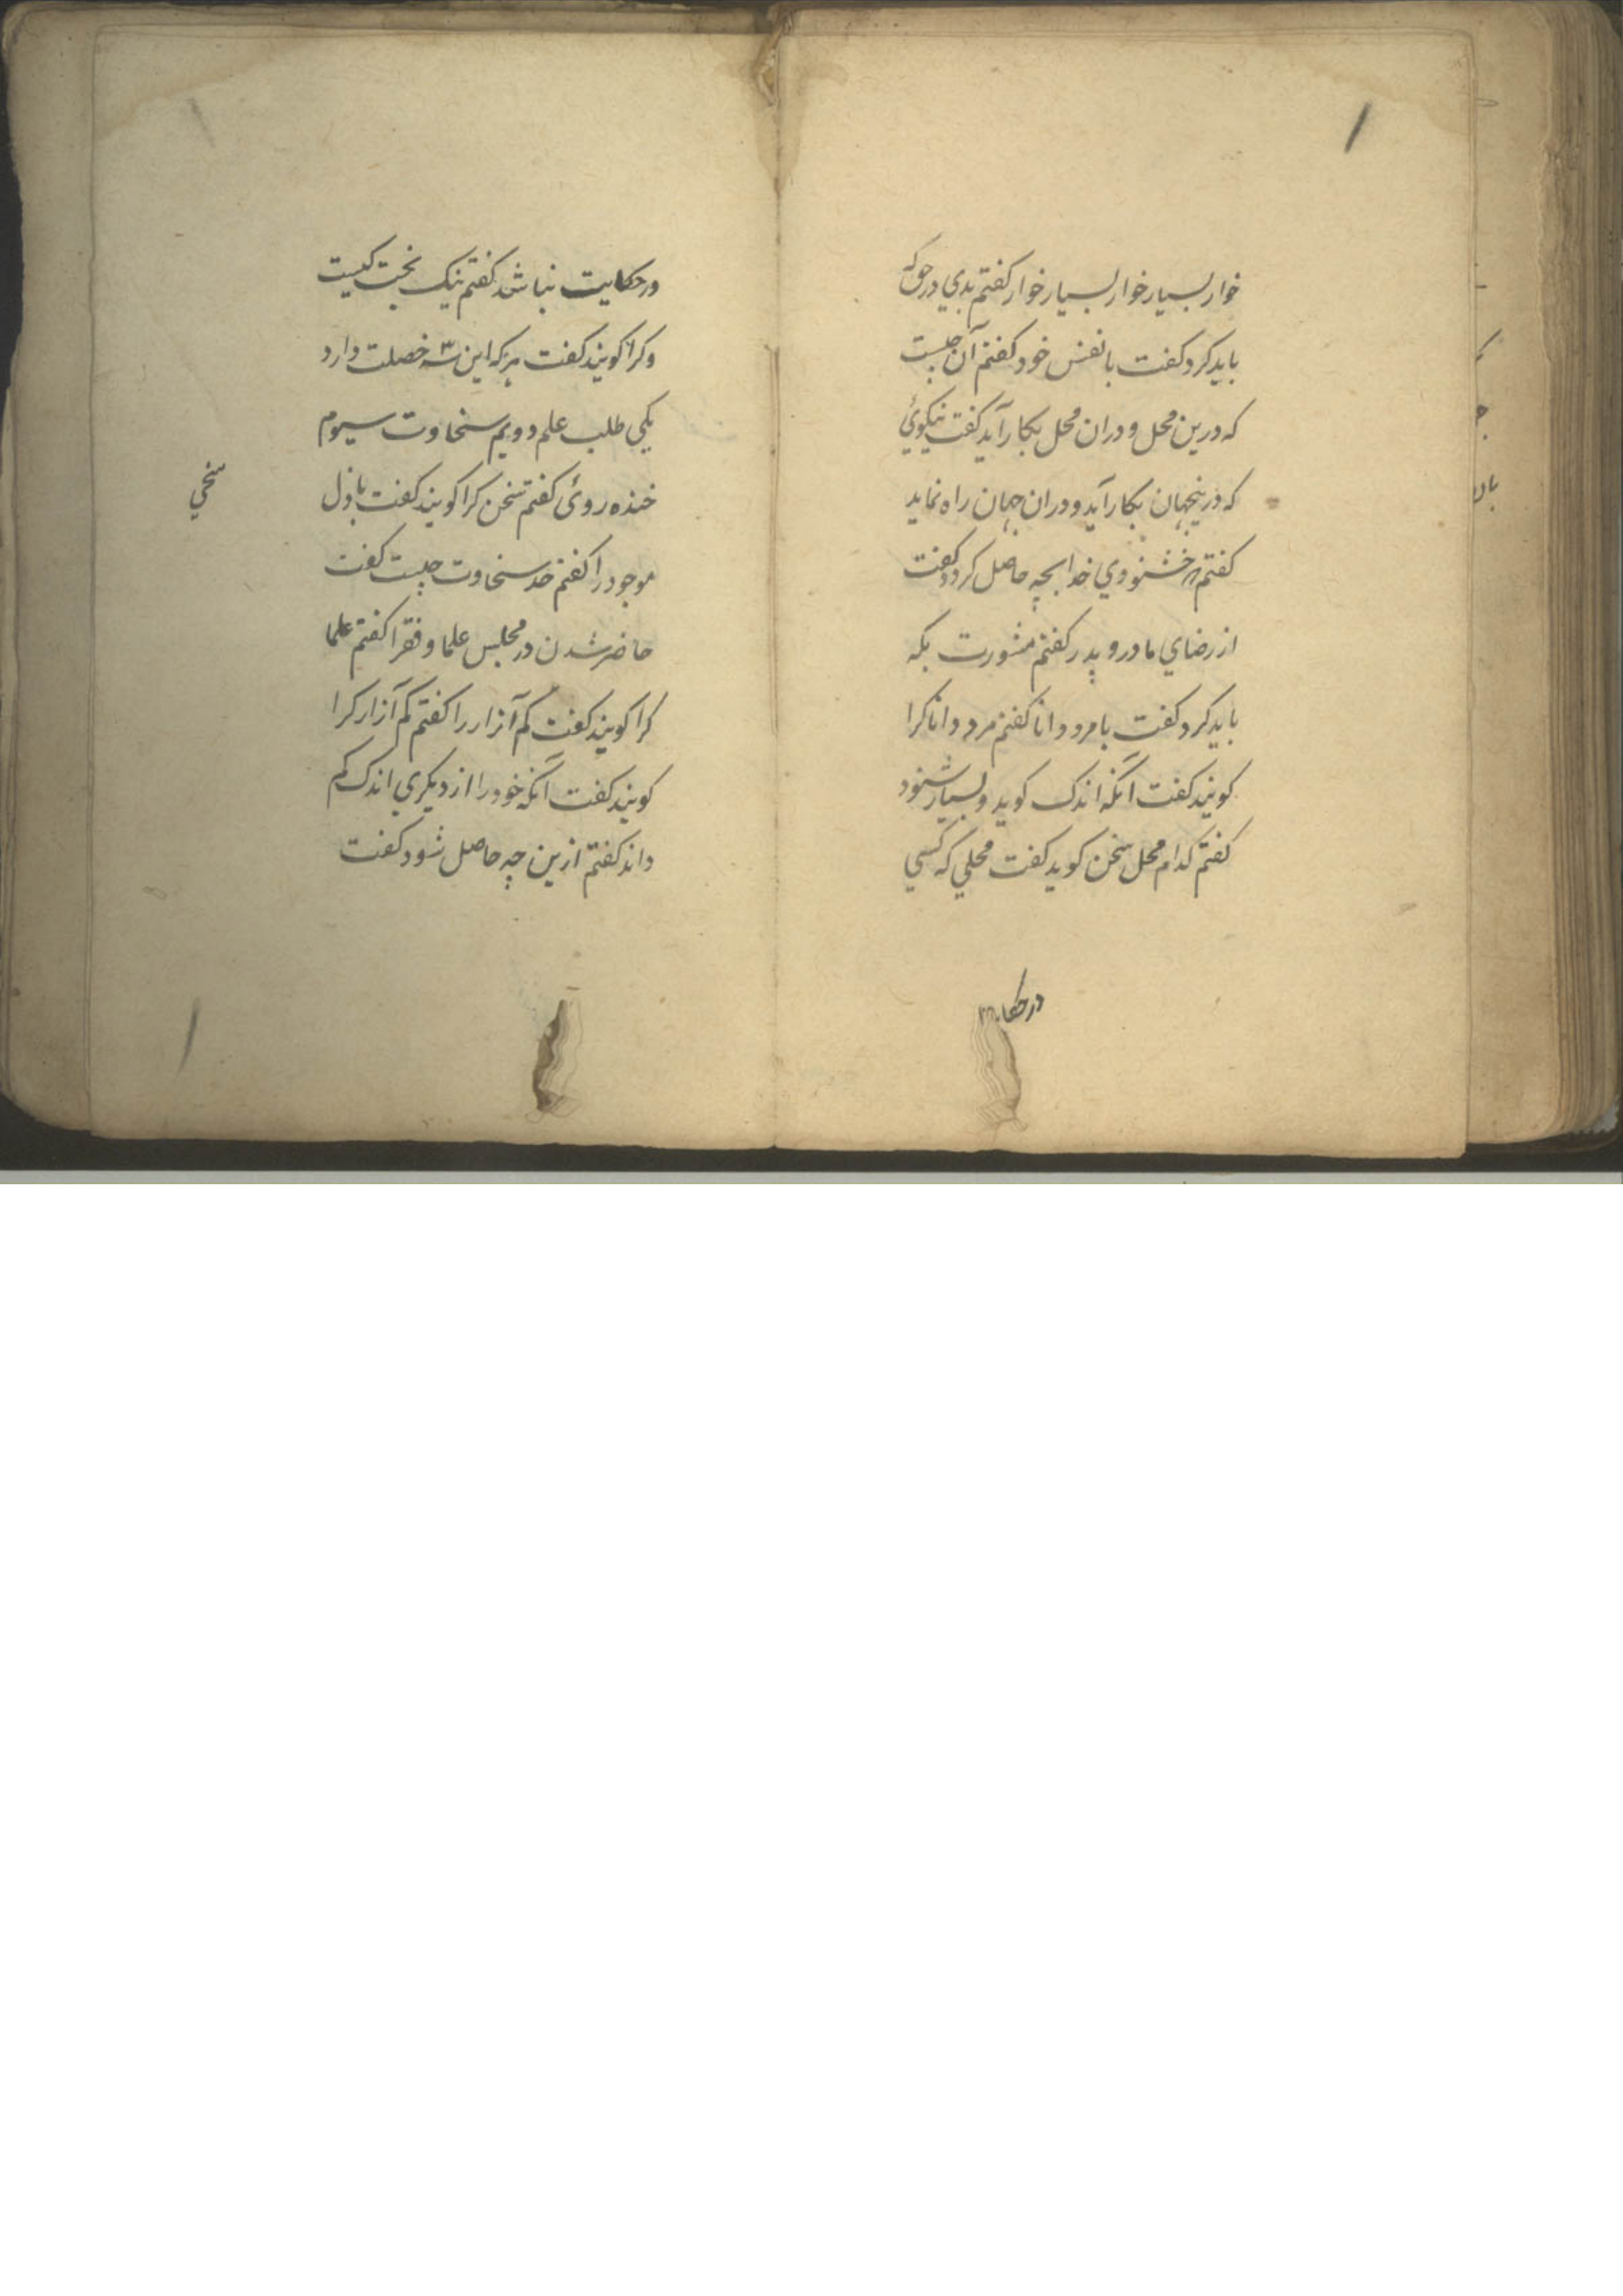 خوار بسیار خوار بسیار خوار کفتم بدي در حق که
باید کرد کفت با نفس خود کفتم آن چیست
که درین محل و دران محل بکار آید کفت نیکوئي
که درینجهان بکار آید و دران جهان راه نماید
کفتم خشنودي خدا بچه حاصل کردد کفت
از رضاي مادر و پدر کفتم مشورت بکه
باید کرد کفت با مرد دانا کفتم مرد دانا کرا
کویند کفت آنکه اندک کوید و بسیار شنود
کفتم کدام محل سخن کوید کفت محلي که کسي
در حکا
در حکایت نباشد کفتم نیک بخت کیست
و کرا کویند کفت هرکه این سه خصلت دارد
یکي طلب علم دویم سخاوت سیوم
خنده روئی کفتم سخن کرا کویند کفت باذل
سخي
موجود را کفتم حد سخاوت چیست کفت
حاضر شدن در مجلس علما و فقرا کفتم علما
کرا کویند کفت کم آزار را کفتم کم آزار کرا
کویند کفت آنکه خود را از دیکري اندک کم
داند کفتم ازین چه حاصل شود کفت